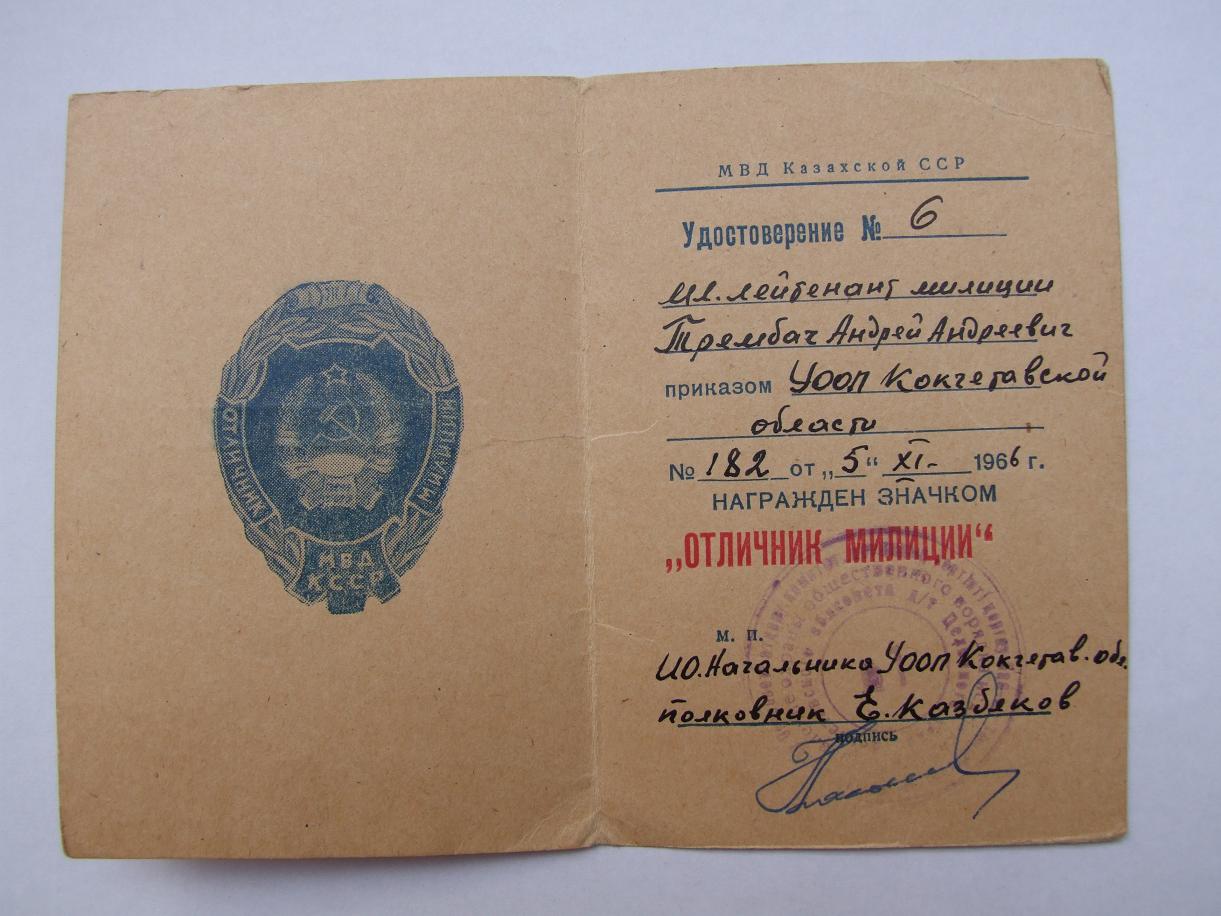 ОТЛИЧНИК
МИЛИЦИИ
МВД
КССР
МВД Казахской ССР
Удостоверение № 6
Мл. лейтенант милиции
Трембач Андрей Андреевич
приказом УООП Кокчетавской
области
№ 182 от „5“ XI- 1966 г.
НАГРАЖДЕН ЗНАЧКОМ
„ОТЛИЧНИК МИЛИЦИИ“
общественного
облсовета
м. п.
ИО. Начальника УООП Кокчетав. обл.
полковник Е. Казбеков
подпись